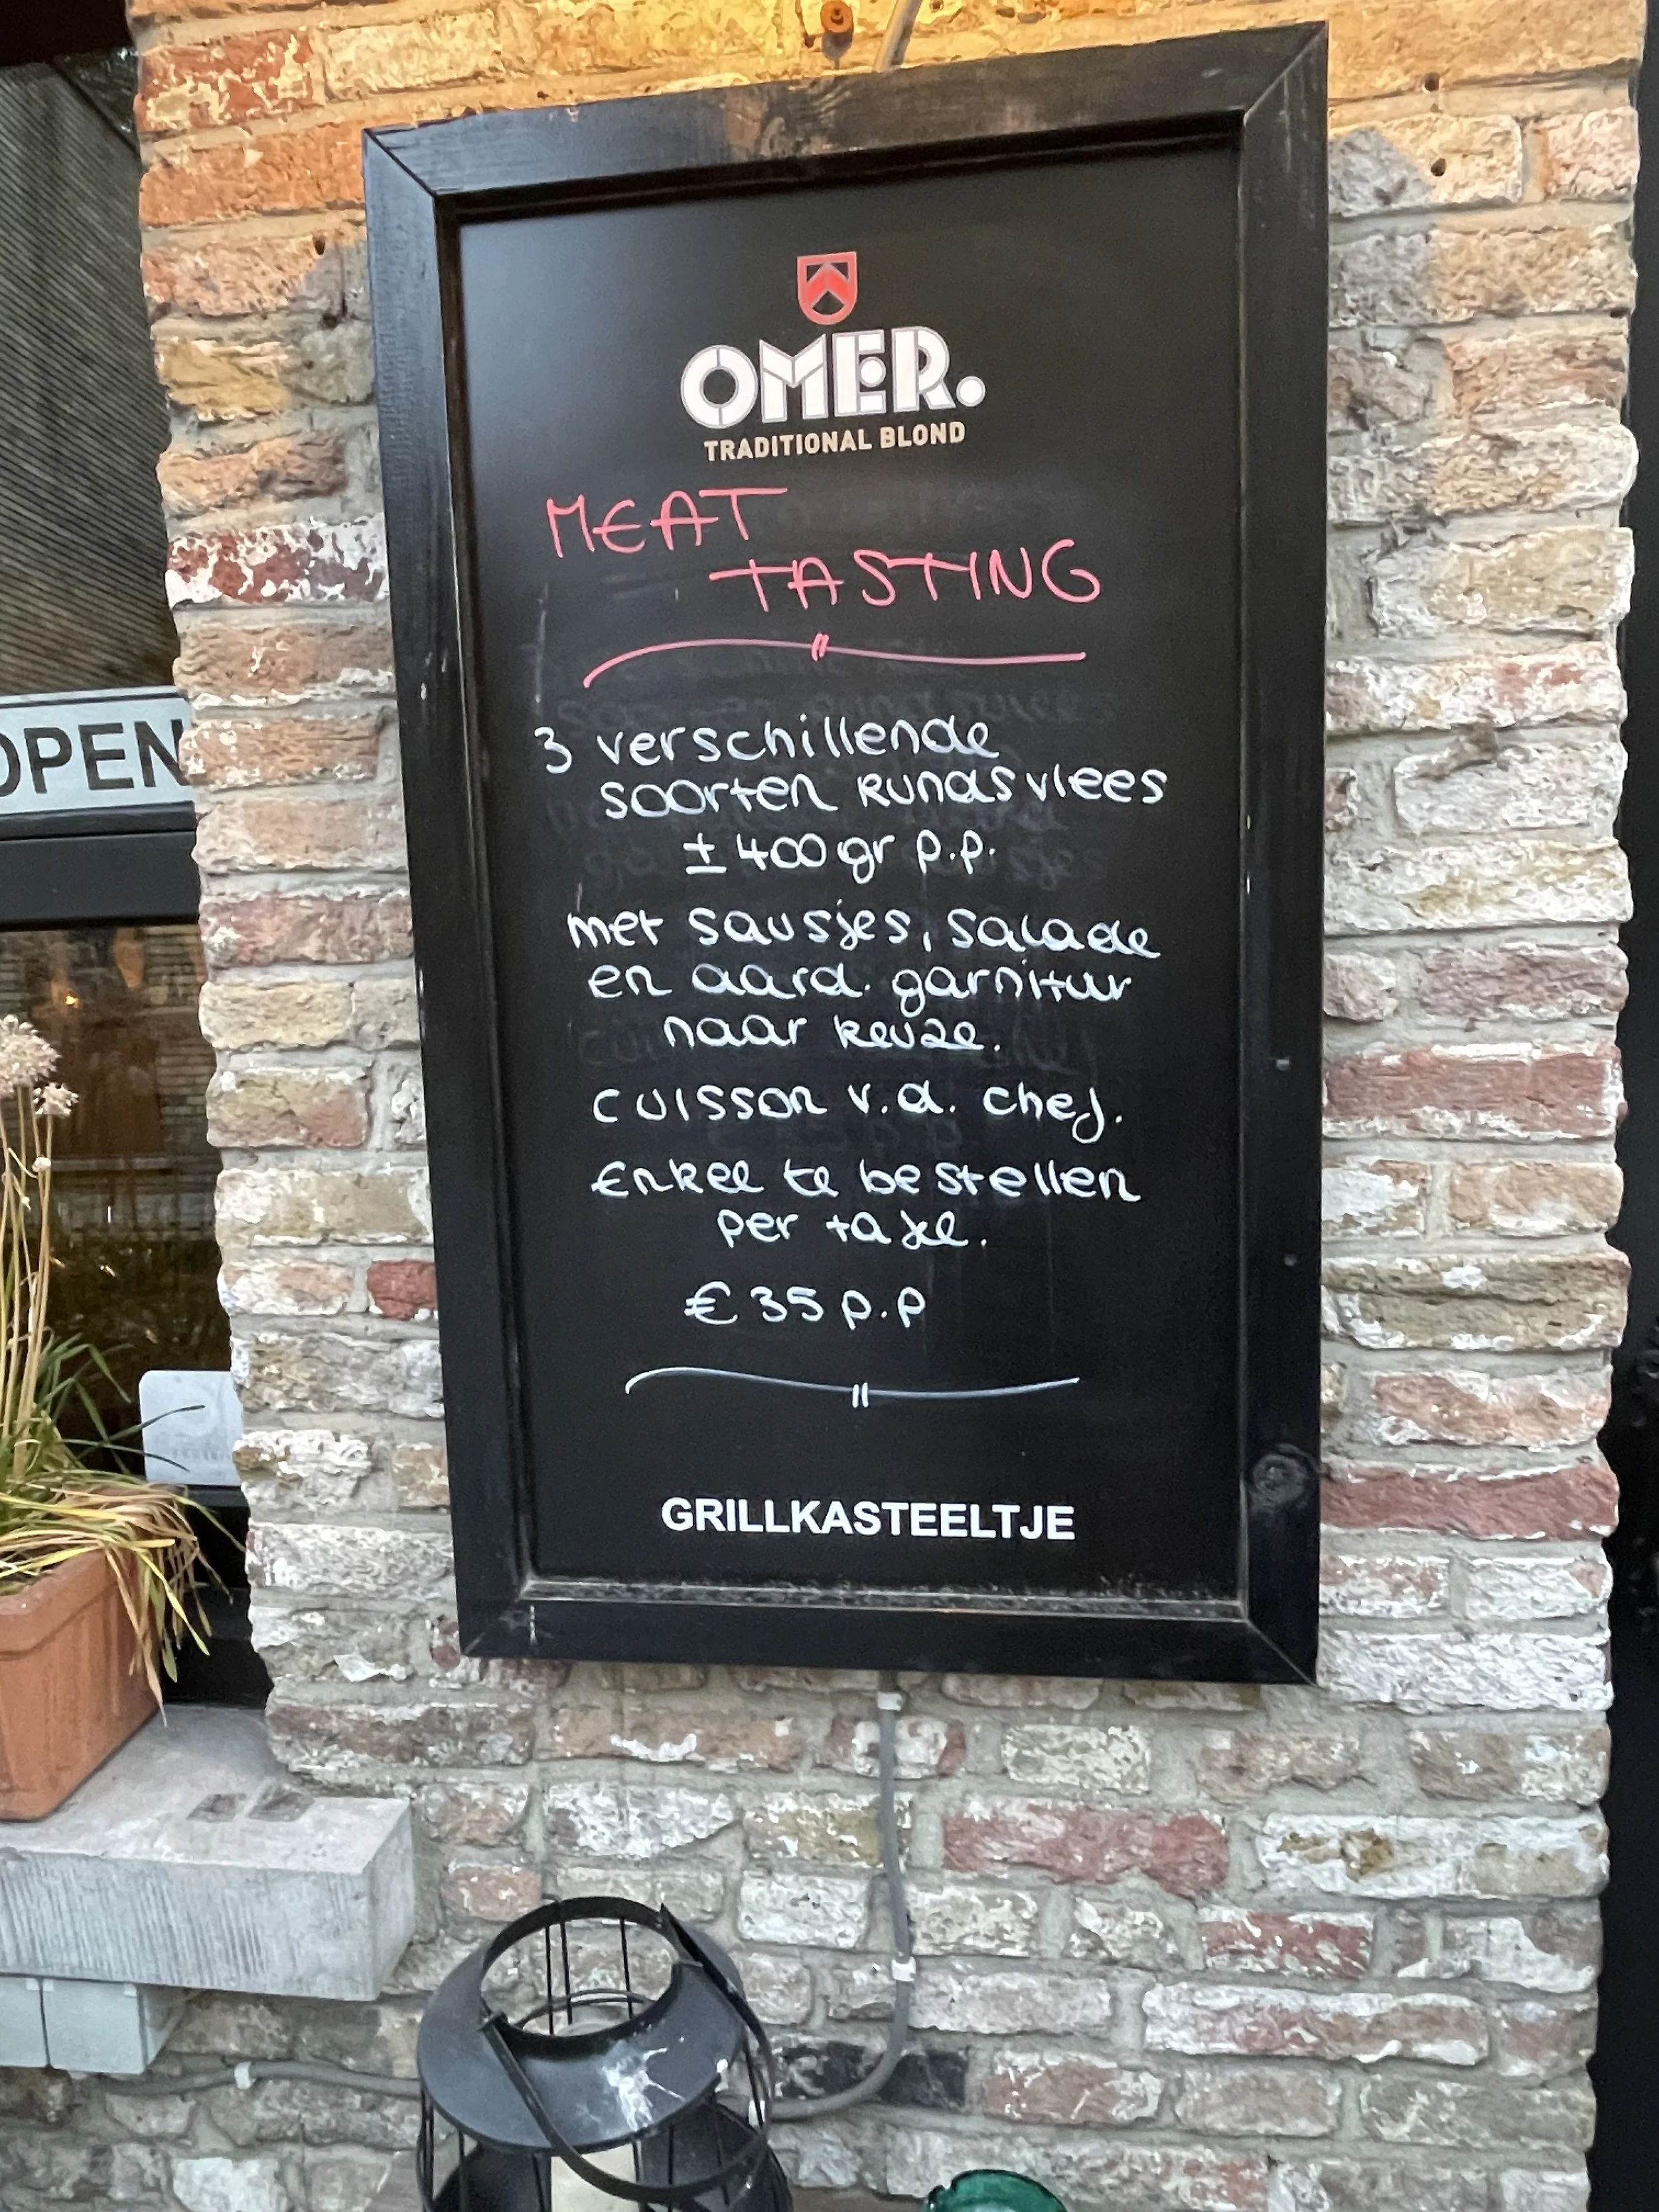 OMER.
TRADITIONAL BLOND
MEAT
TASTING
3 verschillende
soorten rundsvlees
± 400 gr p.p.
met sausjes, salade
en aard. garnituur
naar keuze.
cuisson v.d. chef.
Enkel te bestellen
per tafel.
€ 35 p.p
GRILLKASTEELTJE
OPEN